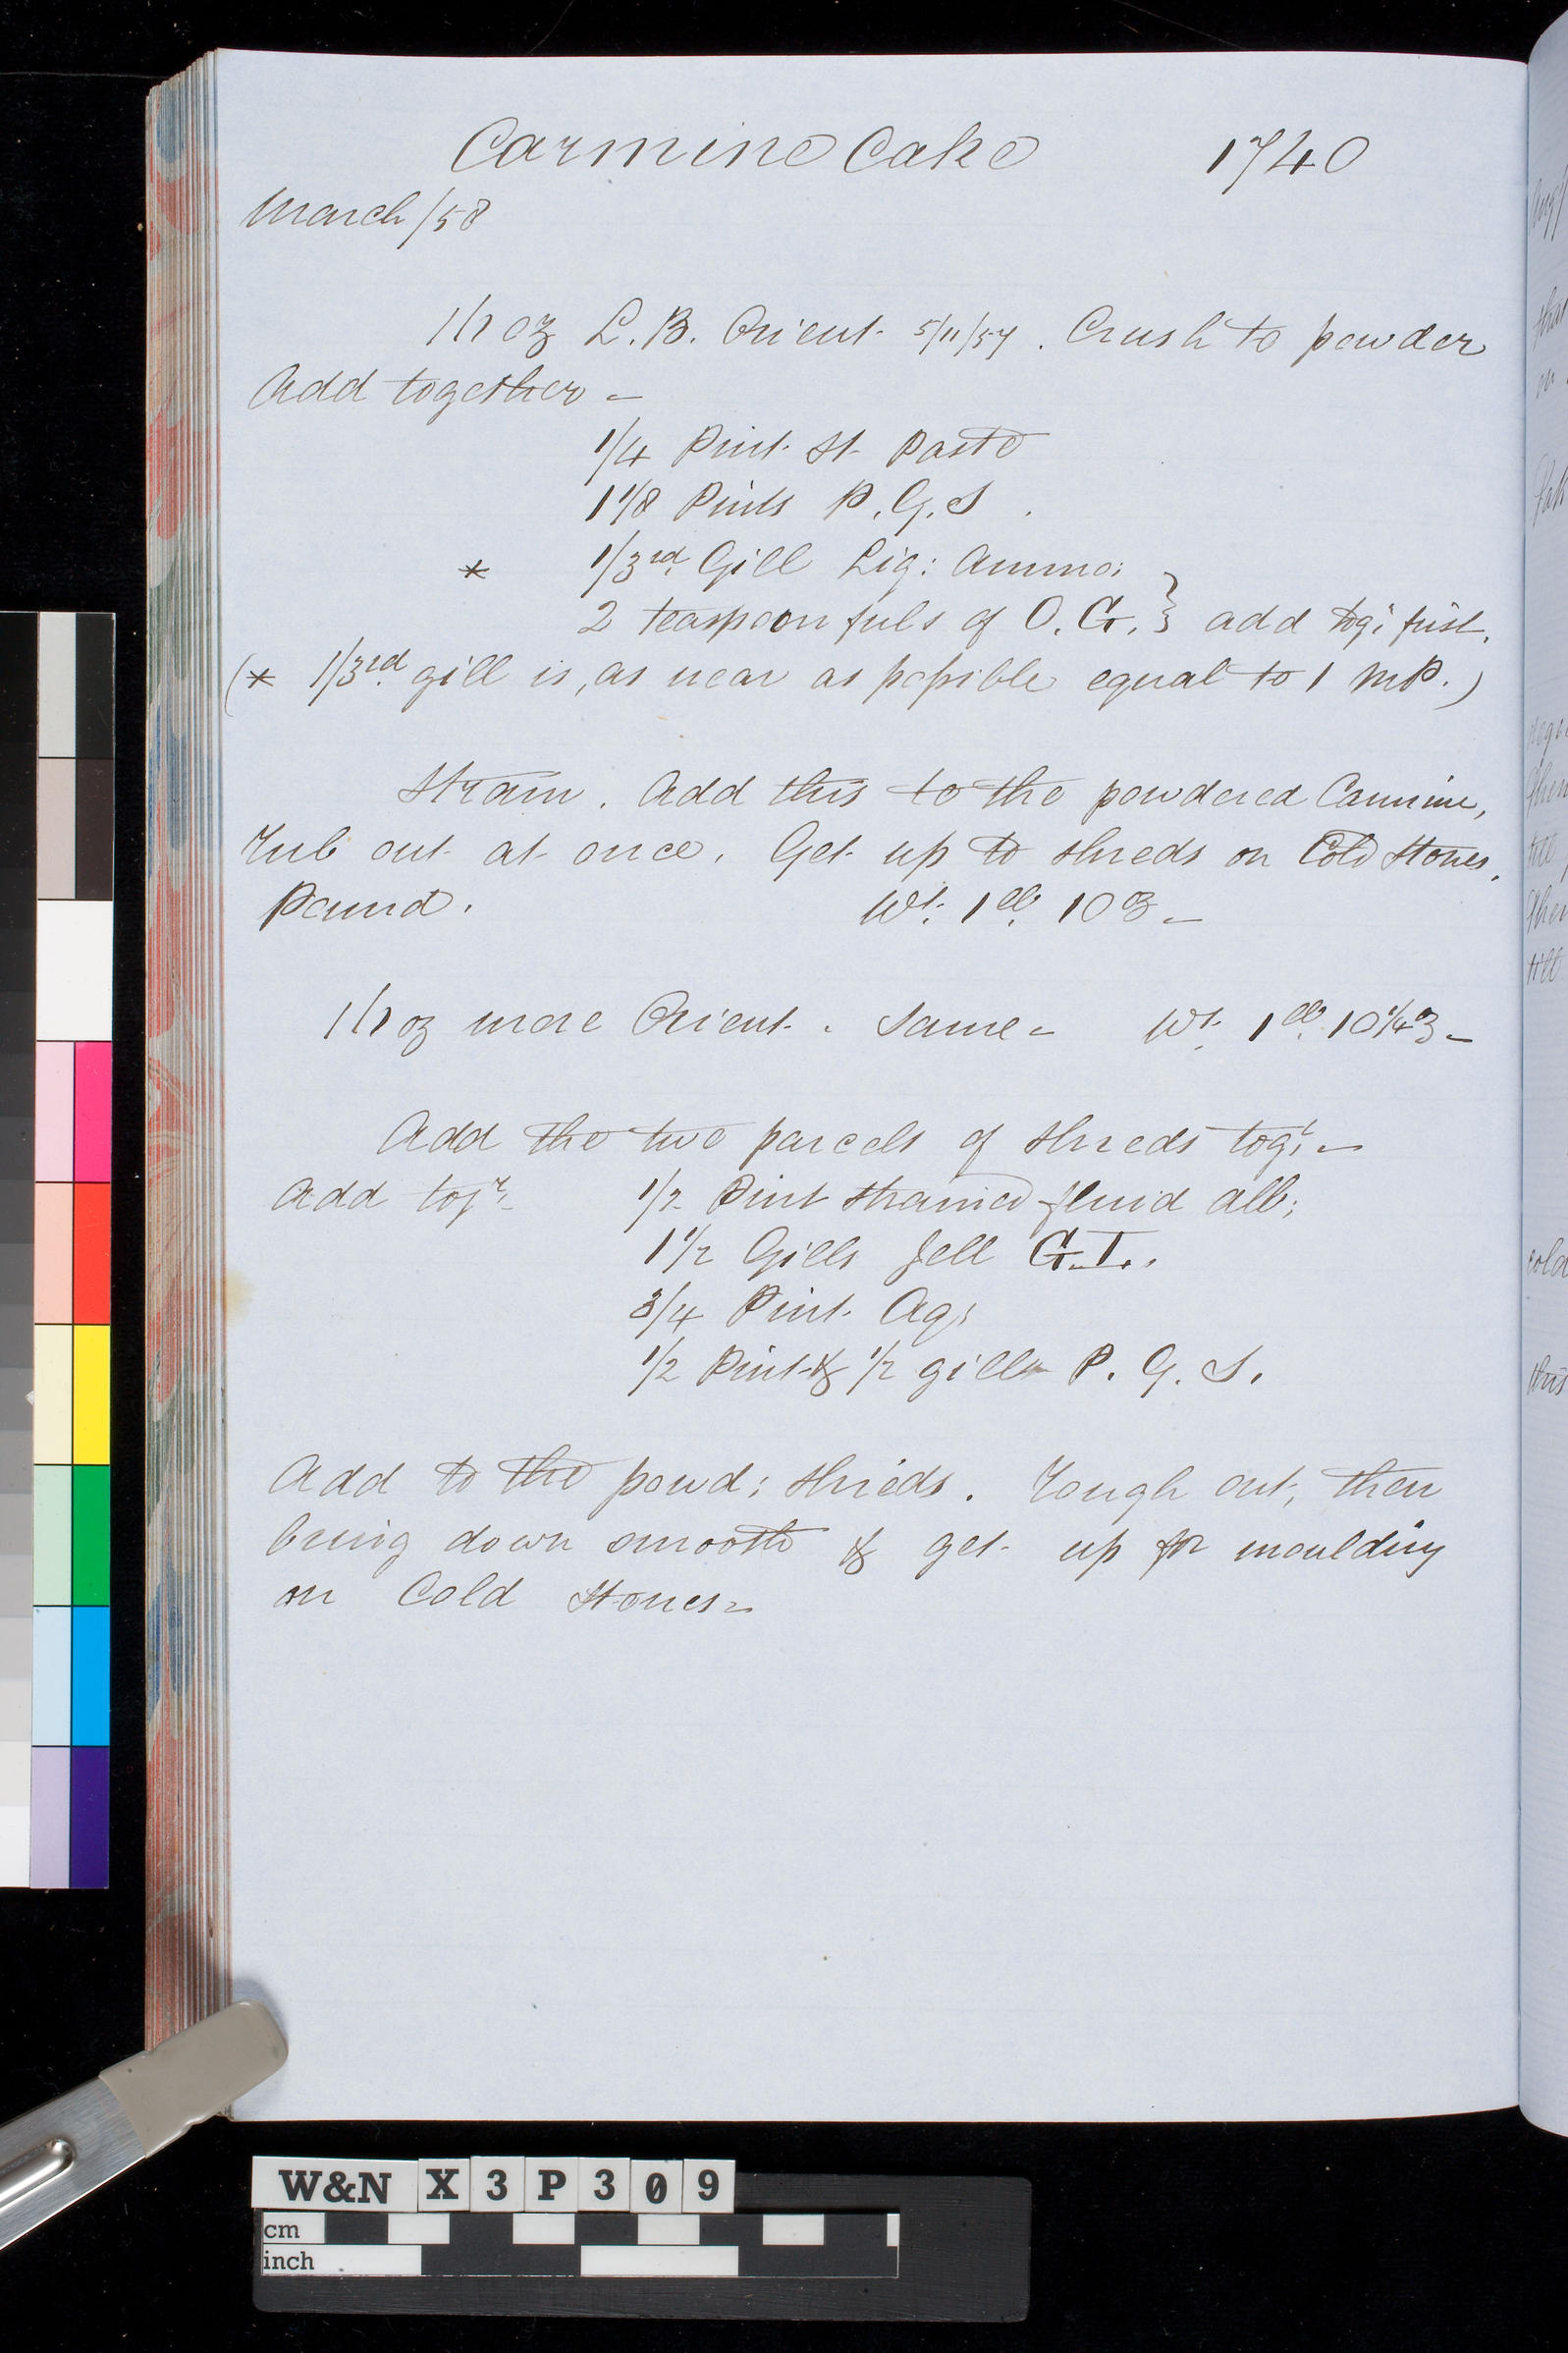 Carmine Cake 1740
March/58
1/1 oz L.B. Orient 5/11/57. Crush to powder
Add together -
1/4 Pint St. Paste
1 1/8 Pints P.G.S.
* 1/3rd Gill Liq: Ammo:
2 teaspoonfuls of O.G. } add tog: first.
(* 1/3rd gill is, as near as possible equal to 1 MP.)
Strain. Add this to the powdered Carmine,
rub out at once. Get up to shreds on Cold Stones.
Pound. Wt. 1 lb. 10 oz -
1/1 oz more Orient. Same - Wt. 1 lb. 10 1/4 oz -
Add the two parcels of shreds togr. -
Add togr. 1/2 Pint strained fluid alb:
1 1/2 Gills Jell G.T..
3/4 Pint Aq:
1/2 Pint & 1/2 gill P. G. S.
Add to the powd: shreds. Rough out, then
bring down smooth & get up for moulding
on Cold Stones -
W&N X3P309
cm
inch